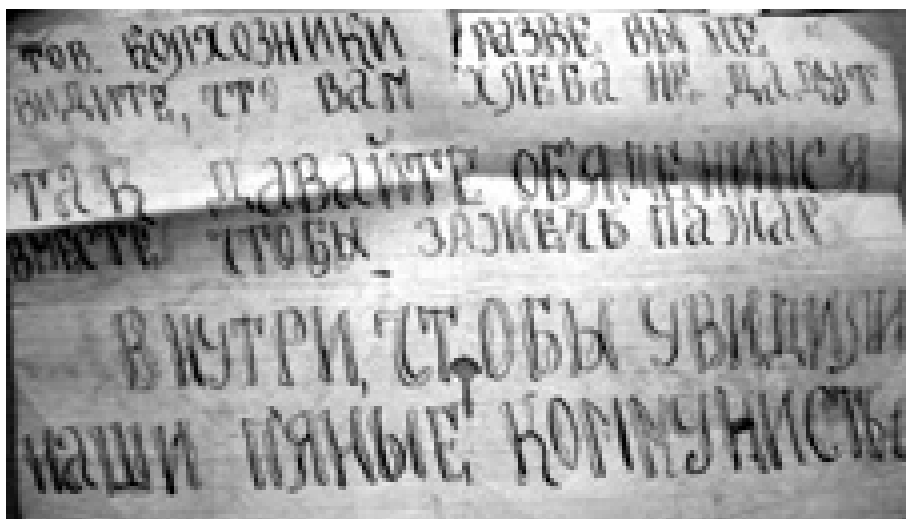 тов. колхозники разве вы не
видите, что вам хлеба не дадут
так давайте об'яденимся
вместе чтобы зажечь пажар
внутри, чтобы увидили
наши пяные коммунисты